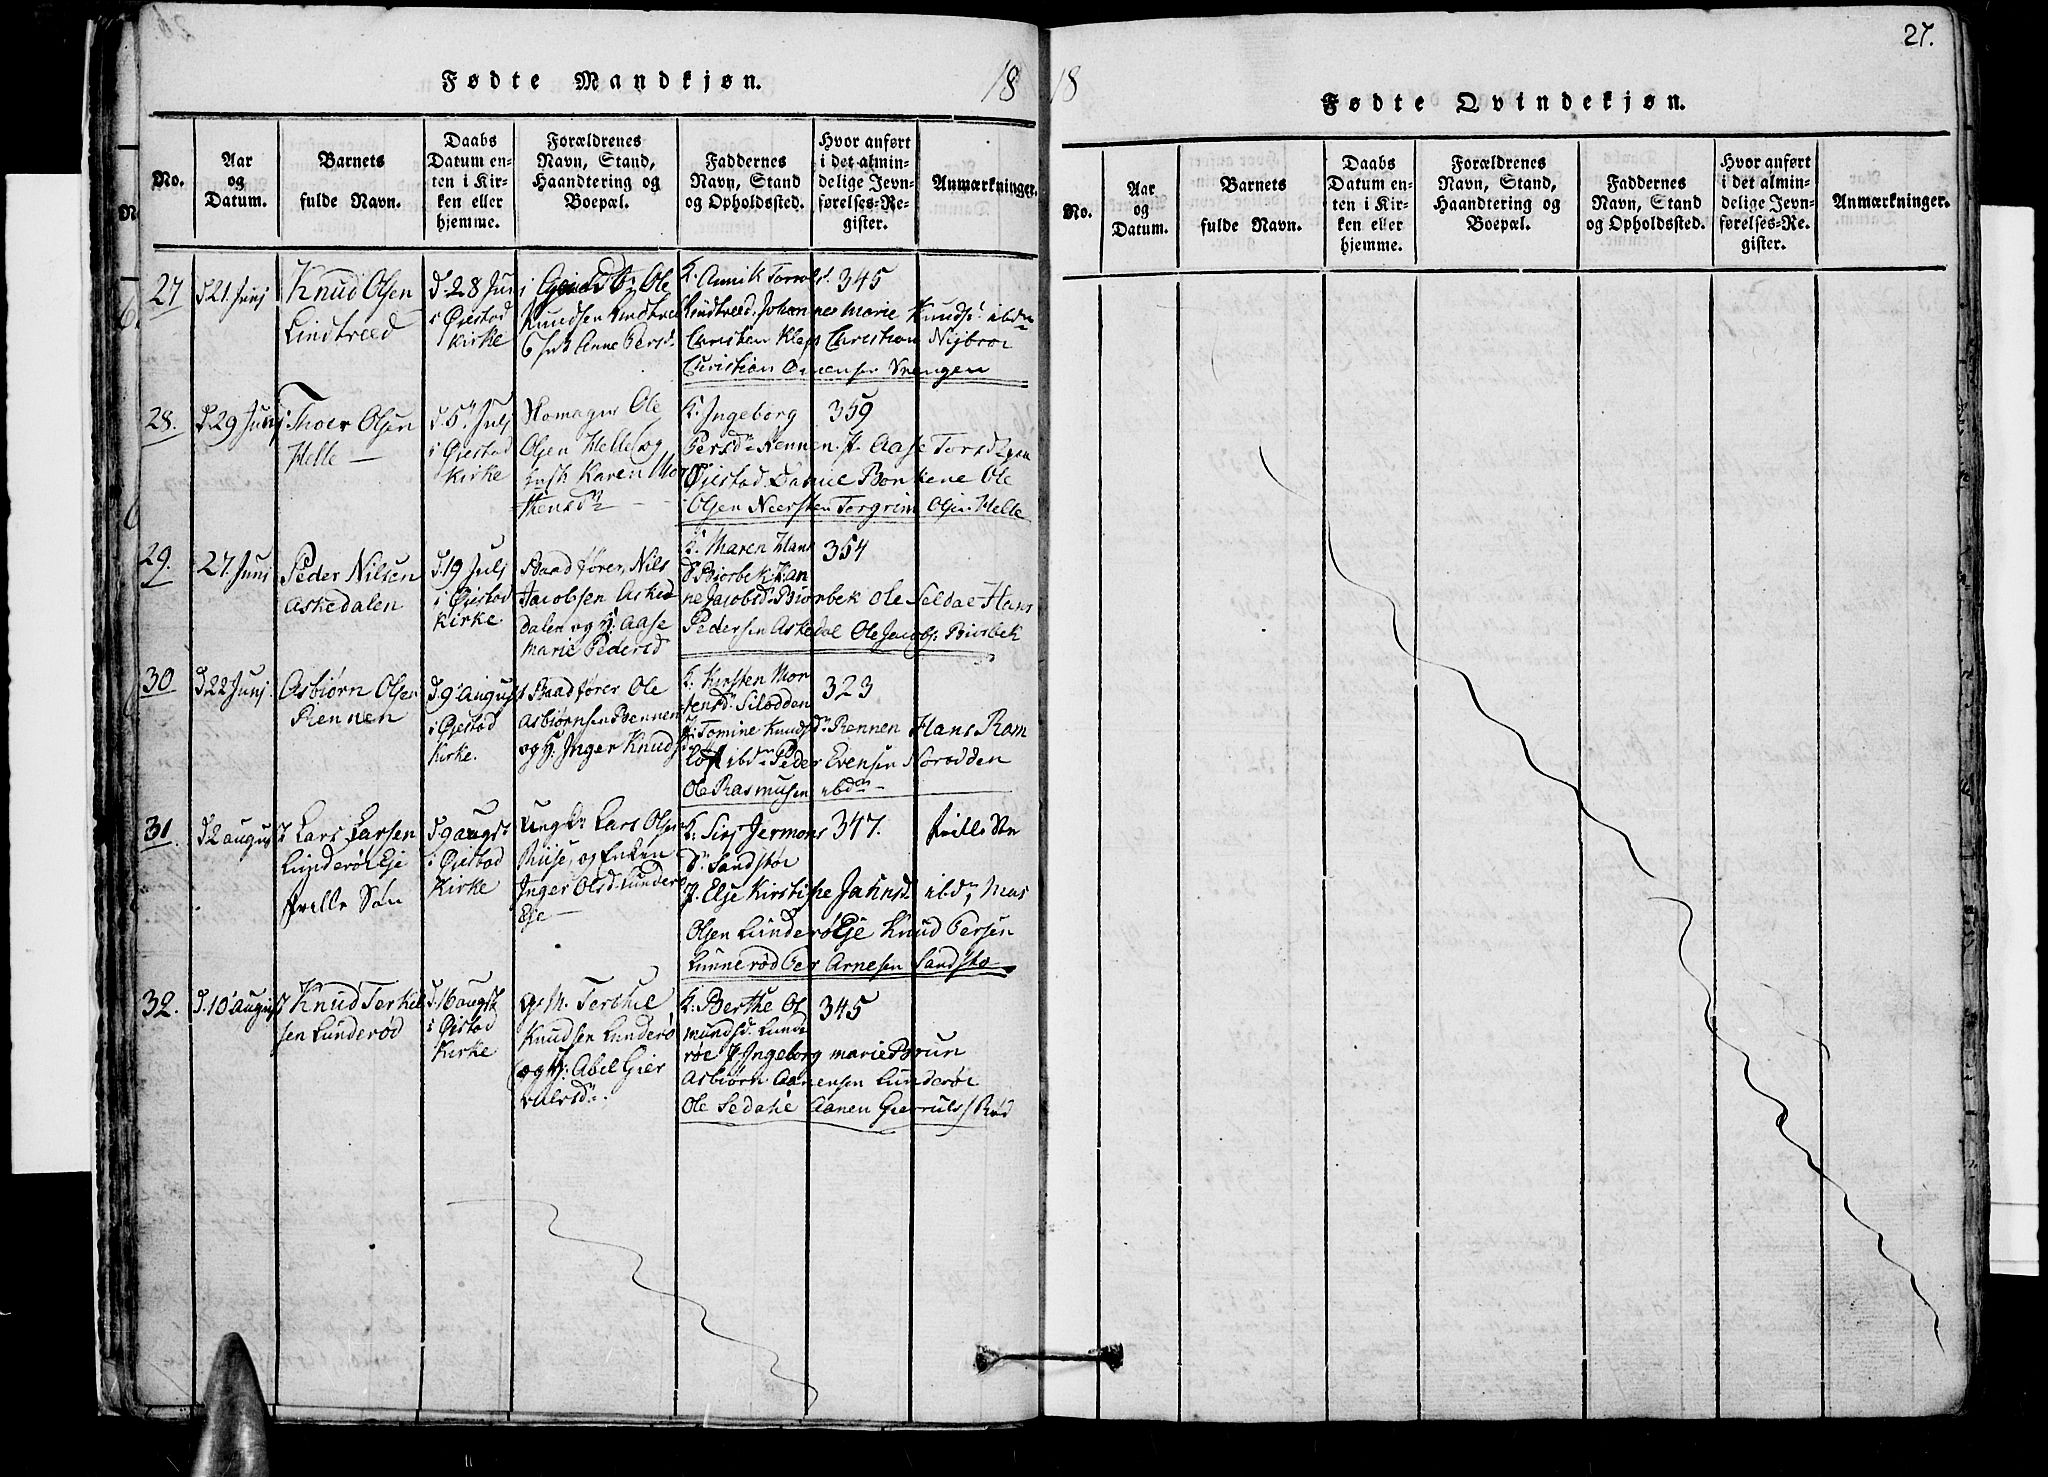 Fødte Mandkjøn.
18
No.
Aar
og
Datum.
Barnets
fulde Navn.
Daabs
Datum en-
ten i Kir-
ken eller
hjemme.
Forældrenes
Navn, Stand,
Haandtering og
Boepæl.
Faddernes
Navn, Stand
og Opholdssted.
Hvor anført
i det almin-
delige Jevn-
førelses-Re-
gister.
Anmærkninger.
27
d 21 Junj
Knud Olsen
Lindtveed
d. 28 Jun
i Øiestad
Kirke
Ole
Knudsen Lindtve
Anne Persd.
K. Annik
Lindtveed. Johannes Marie Knuds. ibdn
Christen Klep Christian Nijbroe
Christian
345
28.
d. 29 Junj
Thoer Olsen
Helle
d. 5. Julj
i Øiestad
Kirke
Ole
Olsen Helle og
Karen Mor
tensdr
K. Ingeborg
Persdr Rennen. J. Aase
Øiestad Ole
Olsen Neersten Torgrim Olsen Helle
359
29.
27. Junj
Peder Nilsen
Askedalen
d. 19 Julj
i Øiestad
Kirke
Baadfører Nils
Jacobsen Aske
dalen og H. Aase
Marie Pedersd
K. Maren Hans
dr Biorbek. Han
ne Jacobsd. Biorbek Ole Seldal Hans
Pedersen Askedal Ole Jacobs. Biorbek
354
30
d. 22 Junj.
Asbiørn Olsen
Rennen
d. 9 August
i Øiestad
Kirke.
Baadfører Ole
Asbiørnsen Rennen
og H. Inger Knuds
K. Kirsten Mor
tensd. Silodden
J. Tomine Knudsdr. Rennen Hans Rom
ibdn Peder Evensen Norodden
Ole Rasmusen ibdn
323
31.
d 2 august
Lars Larsen
Lunderøe Eje
d. 9 augst
i Øiestad
Kirke
Ungk. Lars Olsen
og Enken
Inger Olsd. Lunderø
Eje
K. Sirj Jermons
dr Sandskoe
J. Else Kirstine Jahnsd. ibdn, Mas
Olsen Lunderø Eje Knud Persen
Lunnerød Per Arnesen Sandsko
347.
32.
d. 10 august
Knud Terkel
sen Lunderød
d. 16 augst
i Øiestad
Kirke
G. M. Terchel
Knudsen Lunderø
og H: Abel Gier
ulvsdr.
K. Berthe Os
mundsd. Lunde
røe J Ingeborg marie Brun
Asbiørn Aanensen Lunderøe
Ole Sedahl Aanen Gierruls. Rød
345
27.
18
Fødte Qvindekjøn.
No.
Aar
og
Datum.
Barnets
fulde Navn.
Daabs
Datum en-
ten i Kir-
ken eller
hjemme.
Forældrenes
Navn, Stand,
Haandtering og
Boepæl.
Faddernes
Navn, Stand
og Opholdssted.
Hvor anført
i det almin-
delige Jevn-
førelses-Re-
gister.
Anmærkninger.